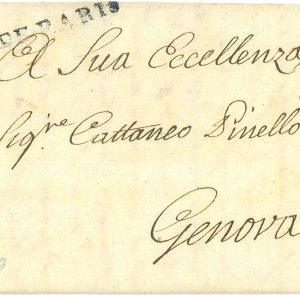 FERRARIS
A Sua Eccellenza
Sig:re Cattaneo Pinello
Genova